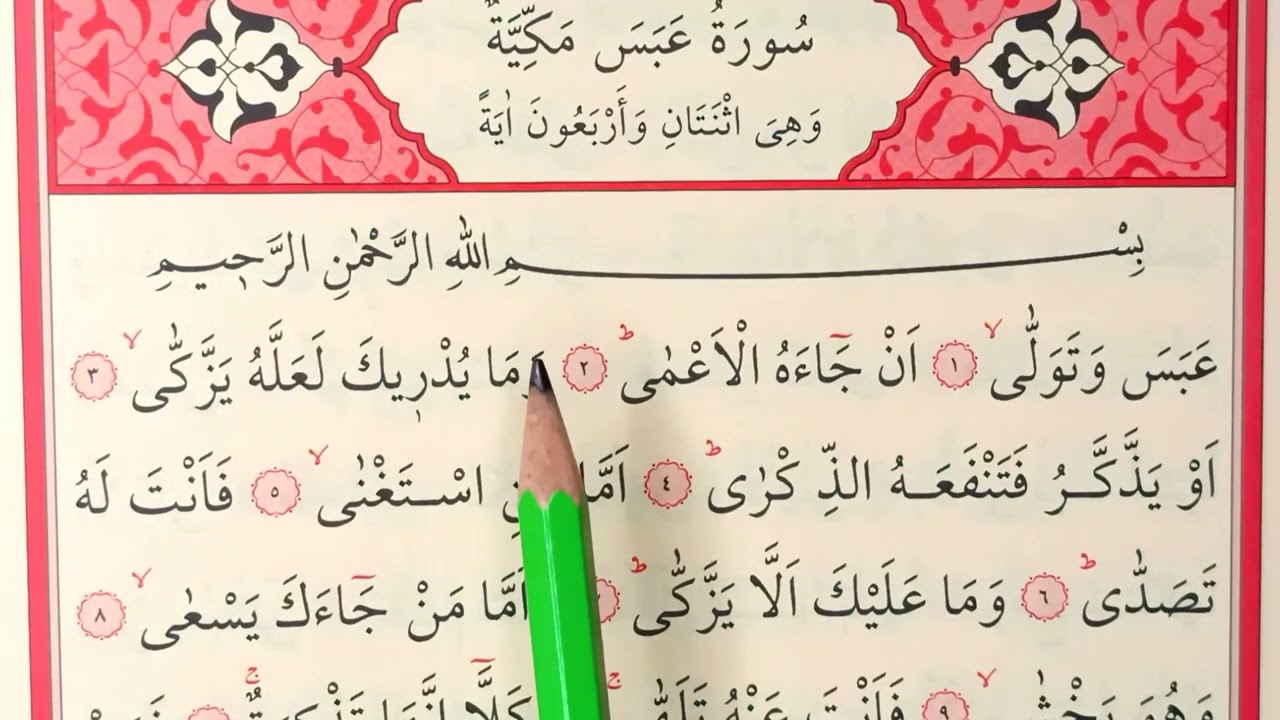 سُورَةُ عَبَسَ مَكِّيَّةٌ
وَهِىَ اثْنَتَانِ وَأَرْبَعُونَ اٰيَةً
بِسْمِ اللّٰهِ الرَّحْمٰنِ الرَّحٖيمِ
عَبَسَ وَتَوَلّٰىۙ ١ اَنْ جَٓاءَهُ الْاَعْمٰىؕ ٢ وَمَا يُدْرٖيكَ لَعَلَّهُ يَزَّكّٰىۙ ٣
اَوْ يَذَّكَّـرُ فَتَنْفَعَـهُ الذِّكْرٰىؕ ٤ اَمَّا اسْـتَغْنٰىۙ ٥ فَاَنْتَ لَهُ
تَصَدّٰىؕ ٦ وَمَا عَلَيْكَ اَلَّا يَزَّكّٰىؕ اَمَّا مَنْ جَٓاءَكَ يَسْعٰىۙ ٨
وَهُوَ يَخْشٰىۙ ٩ فَاَنْتَ عَنْهُ تَلَهّٰىۚ كَلَّٓا اِنَّهَا تَذْكِرَةٌۚ